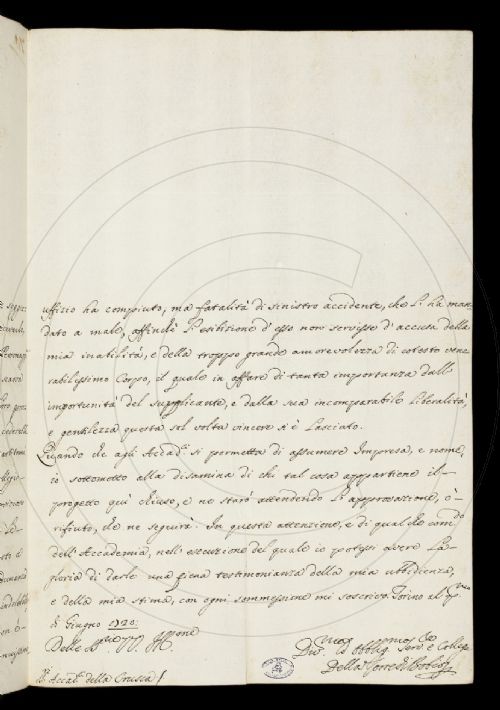 uffizio ha compiuto, ma fatalità di sinistro accidente, che l'ha man-
dato a male, affinchè l'esibizione d'esso non servisse d'accusa della
mia inabilità, e della troppo grande amorevolezza di cotesto vene
rabilissimo Corpo, il quale in affare di tanta importanza dall'
importunità del supplicante, e dalla sua incomparabile liberalità,
e gentilezza questa sol volta vincere si è lasciato.
che agli Accad.ci si permetta di assumere Impresa, e nome,
io sottometto alla disamina di chi tal cosa appartiene il
progetto quì chiuso, e ne starò attendendo l'approvazione, ò
rifiuto, che ne seguirà. In questa attenzione, e di qualche com.do
dell'Accademia, nell'esecuzione del quale io potessi avere la
gloria di darle una piena testimonianza della mia ubbidienza,
e della mia stima, con ogni sommessione mi soscrivo. Torino al p.mo
di Giugno 1728.
Delle
Accad.ci della Crusca